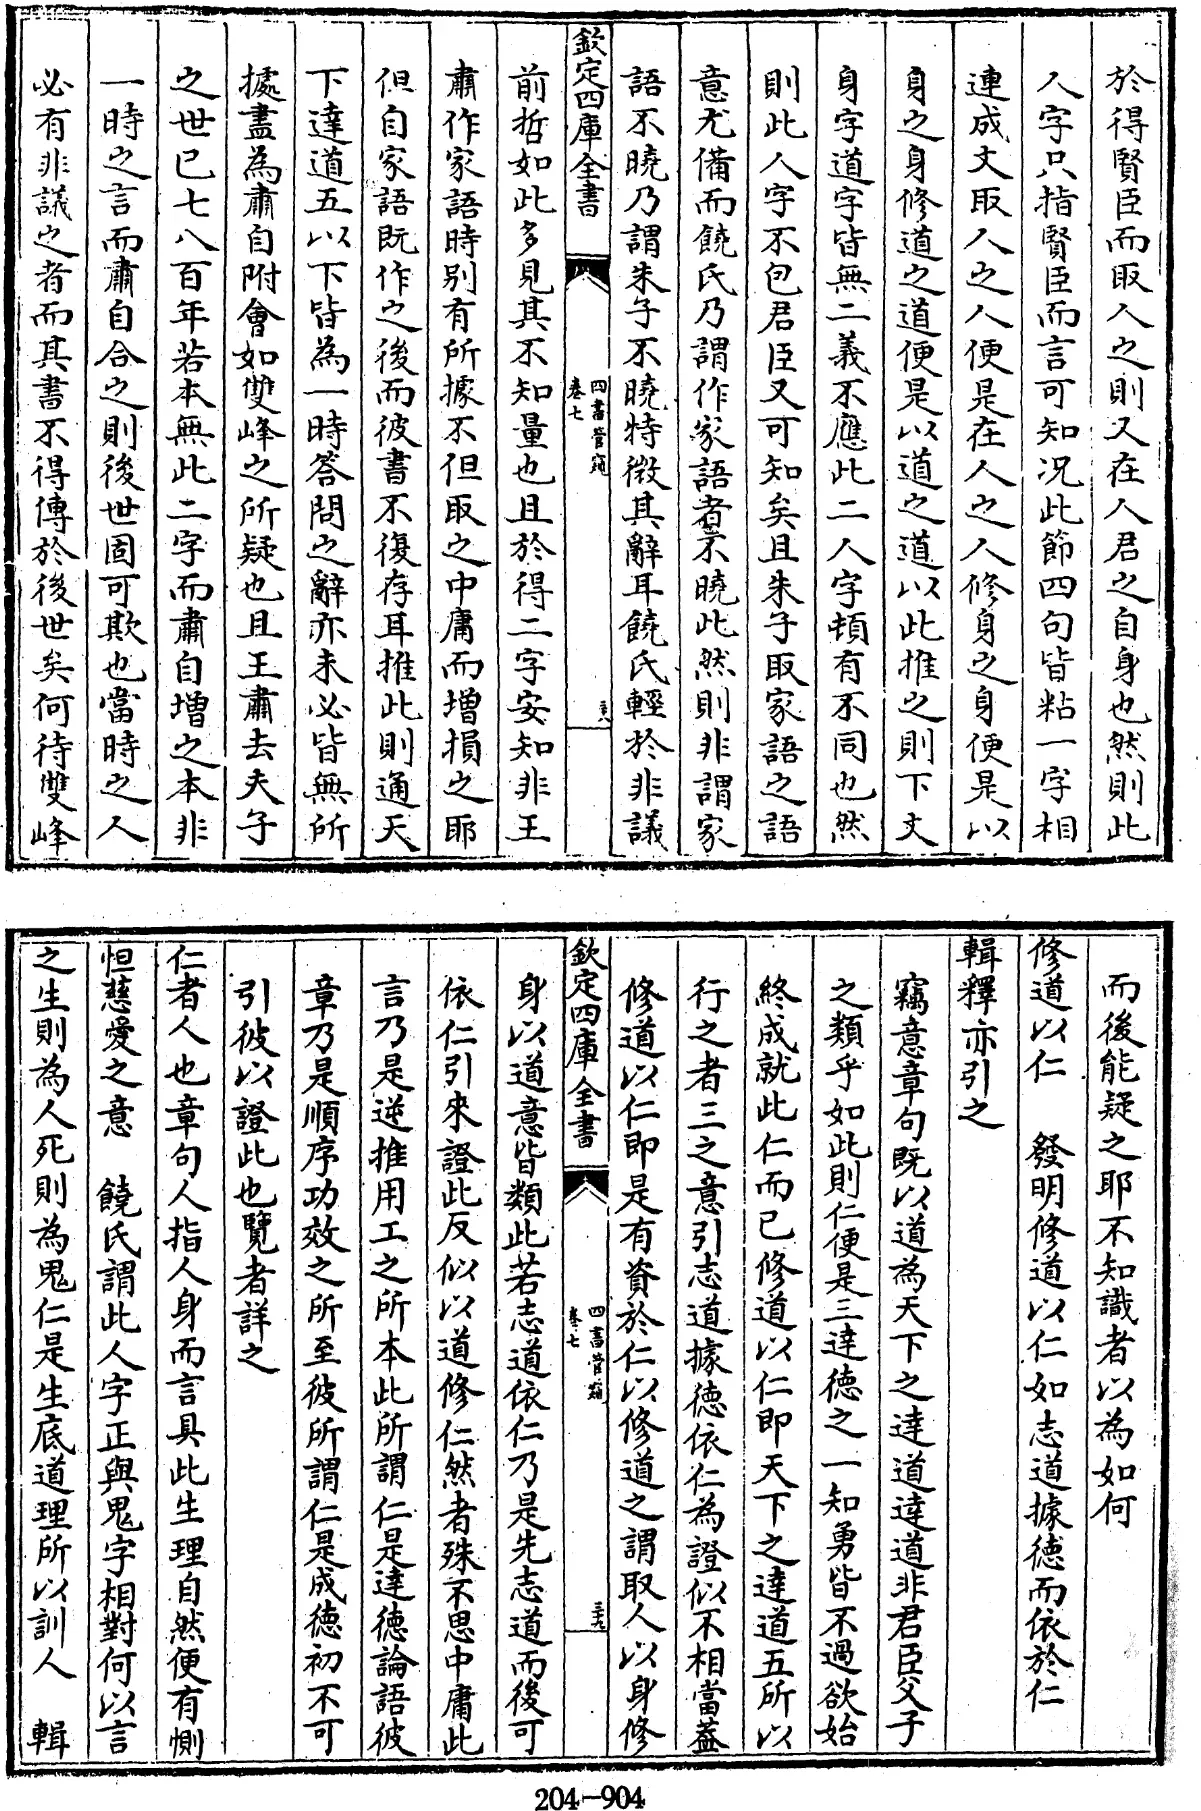 於得賢臣而取人之則又在人君之自身也然則此
人字只指賢臣而言可知况此節四句皆粘一字相
連成文取人之人便是在人之人修身之身便是以
身之身修道之道便是以道之道以此推之則下文
身字道字皆無二義不應此二人字頓有不同也然
則此人字不包君臣又可知矣且朱子取家語之語
意尤備而饒氏乃謂作家語者不曉此然則非謂家
語不曉乃謂朱子不曉特微其辭耳饒氏輕於非議
欽定四庫全書
四書管窺
卷七
前哲如此多見其不知量也且於得二字安知非王
肅作家語時别有所據不但取之中庸而增損之耶
但自家語既作之後而彼書不復存耳推此則通天
下達道五以下皆為一時答問之辭亦未必皆無所
據盡為肅自附會如雙峰之所疑也且王肅去夫子
之世已七八百年若本無此二字而肅自增之本非
一時之言而肅自合之則後世固可欺也當時之人
必有非議之者而其書不得傳於後世矣何待雙峰
而後能疑之耶不知識者以為如何
修道以仁　發明修道以仁如志道據德而依於仁
輯釋亦引之
竊意章句既以道為天下之達道達道非君臣父子
之類乎如此則仁便是三達德之一知勇皆不過欲始
終成就此仁而已修道以仁即天下之達道五所以
行之者三之意引志道據德依仁為證似不相當蓋
修道以仁即是有資於仁以修道之謂取人以身修
欽定四庫全書
四書管窺
卷七
三十九
身以道意皆類此若志道依仁乃是先志道而後可
依仁引來證此反似以道修仁然者殊不思中庸此
言乃是逆推用工之所本此所謂仁是達德論語彼
章乃是順序功效之所至彼所謂仁是成德初不可
引彼以證此也覽者詳之
仁者人也章句人指人身而言具此生理自然便有惻
怛慈愛之意　饒氏謂此人字正與鬼字相對何以言
之生則為人死則為鬼仁是生底道理所以訓人　輯
204-904